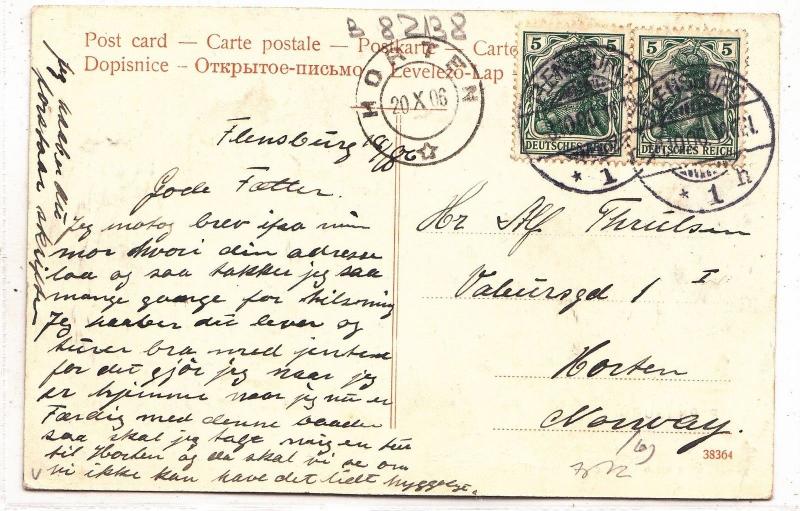 B 82/38
Post card — Carte postale — Postkarte — Carto
Dopisnice - Открытое-письмо - Levelező-Lap
HORTEN
20 X 06
5 5
DEUTSCHES REICH DEUTSCHES REICH
FLENSBURG FLENSBURG
* 1 * 1 n
Flensburg
Gode Fætter.
Jeg motog brev ifra min
mor hvori din adresse
laa og saa takker jeg saa
mange gange for hilsning
Jeg haaber du lever og
turer bra med jentene
for det gjör jeg naar jeg
er hjemme naar jeg nu er
Færdig med denne baaden
saa skal jeg tage mig en tur
til Horten og da skal vi se om
vi ikke kan have det lidt hyggeligt.
Jeg haaber du
forstaar skriften
Hr Alf Thrulsen
Vabursgd 1 I
Horten
Norway.
38364